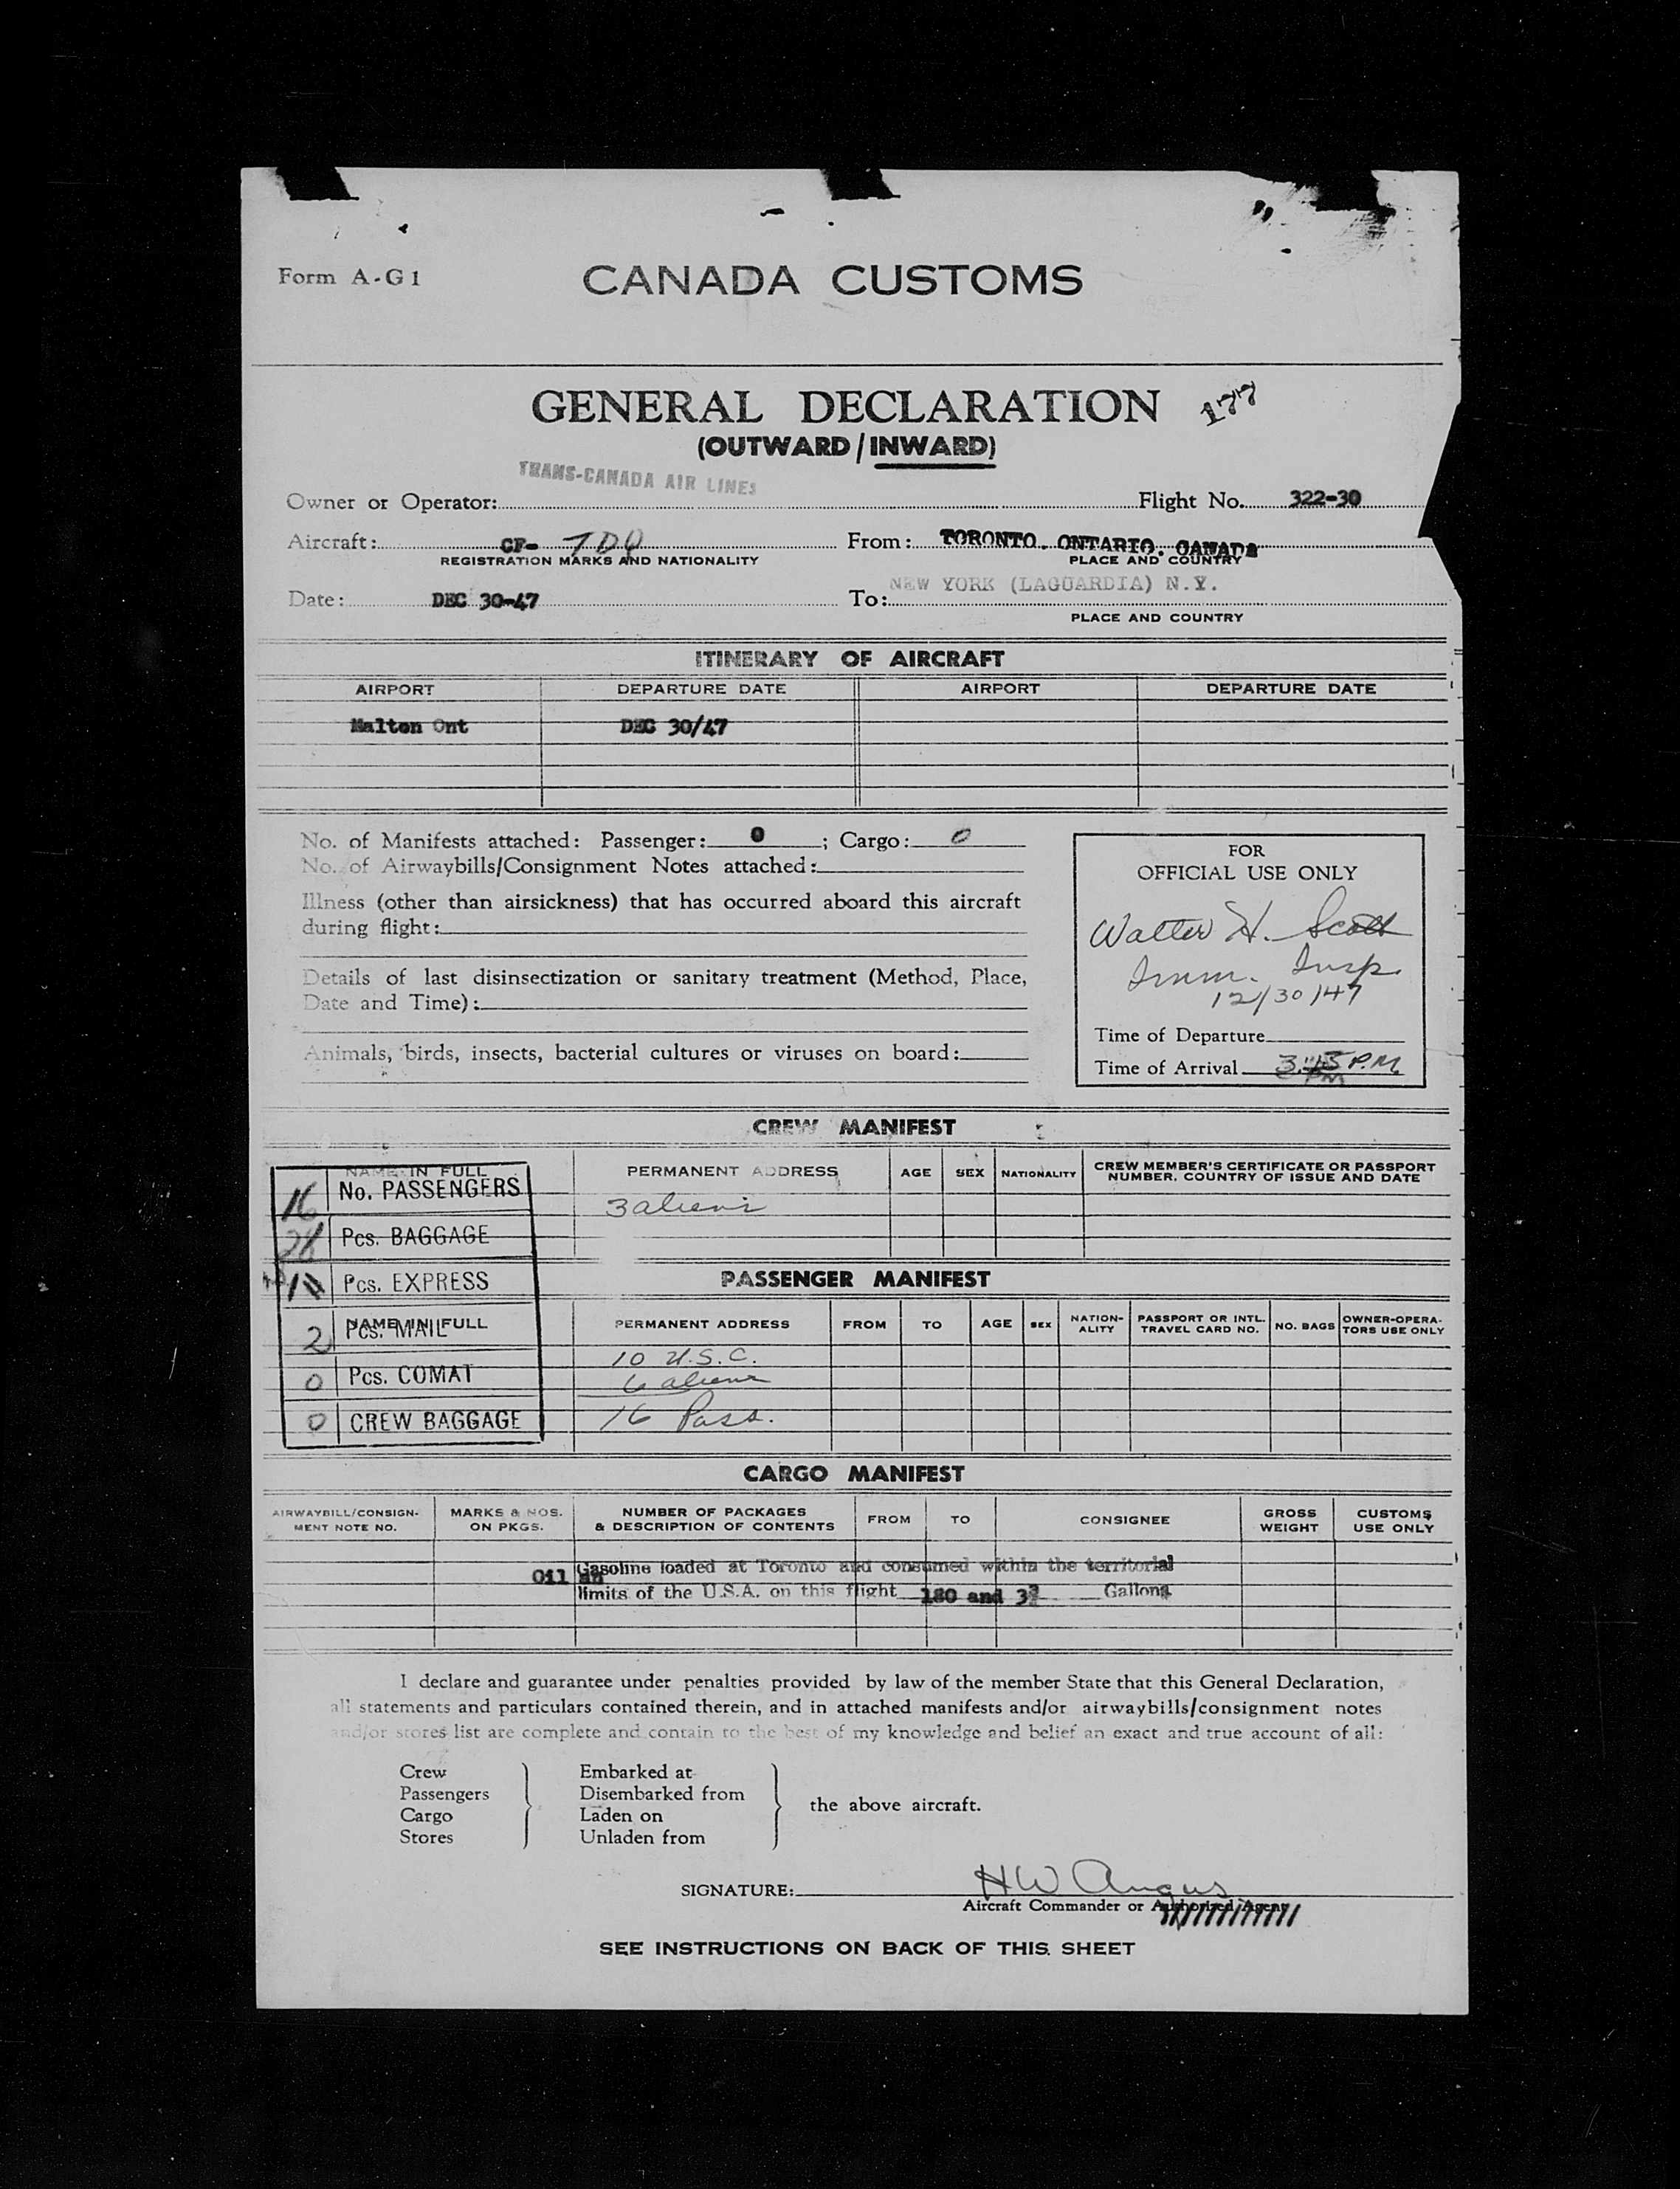 Form A-G1
CANADA CUSTOMS
GENERAL DECLARATION 177
(OUTWARD/INWARD)
TRANS-CANADA AIR LINES
Owner or Operator: Flight No. 322-30
Aircraft: CF- From: TORONTO. ONTARIO. CANADA
REGISTRATION MARKS AND NATIONALITY PLACE AND COUNTRY
Date: DEC 30-47 To: NEW YORK (LAGUARDIA) N.Y.
PLACE AND COUNTRY
ITINERARY OF AIRCRAFT
AIRPORT DEPARTURE DATE AIRPORT DEPARTURE DATE
Malton Ont DEC 30/47
No. of Manifests attached: Passenger: 0 ; Cargo: 0
No. of Airwaybills/Consignment Notes attached:
Illness (other than airsickness) that has occurred aboard this aircraft
during flight:
Details of last disinsectization or sanitary treatment (Method, Place,
Date and Time):
Animals, birds, insects, bacterial cultures or viruses on board:
FOR
OFFICIAL USE ONLY
Walter H. Scott
Imm. Insp.
12/30/47
Time of Departure
Time of Arrival 3:45 P.M.
PM
CREW MANIFEST
NAME IN FULL PERMANENT ADDRESS AGE SEX NATIONALITY CREW MEMBER'S CERTIFICATE OR PASSPORT
NUMBER, COUNTRY OF ISSUE AND DATE
3 aliens
16 No. PASSENGERS
28 Pcs. BAGGAGE
Pcs. EXPRESS
2 Pcs. MAIL
0 Pcs. COMAT
0 CREW BAGGAGE
PASSENGER MANIFEST
NAME IN FULL PERMANENT ADDRESS FROM TO AGE SEX NATION-
ALITY PASSPORT OR INTL.
TRAVEL CARD NO. NO. BAGS OWNER-OPERA-
TORS USE ONLY
10 U.S.C.
6 aliens
16 Pass.
CARGO MANIFEST
AIRWAYBILL/CONSIGN-
MENT NOTE NO. MARKS & NOS.
ON PKGS. NUMBER OF PACKAGES
& DESCRIPTION OF CONTENTS FROM TO CONSIGNEE GROSS
WEIGHT CUSTOMS
USE ONLY
Oil an Gasoline loaded at Toronto and consumed within the territorial
limits of the U.S.A. on this flight 180 and Gallons
I declare and guarantee under penalties provided by law of the member State that this General Declaration,
all statements and particulars contained therein, and in attached manifests and/or airwaybills/consignment notes
and/or stores list are complete and contain to the best of my knowledge and belief an exact and true account of all:
Crew Embarked at
Passengers Disembarked from
Cargo Laden on
Stores Unladen from
the above aircraft.
SIGNATURE: HW Angus
Aircraft Commander or Authorized Agent
SEE INSTRUCTIONS ON BACK OF THIS SHEET